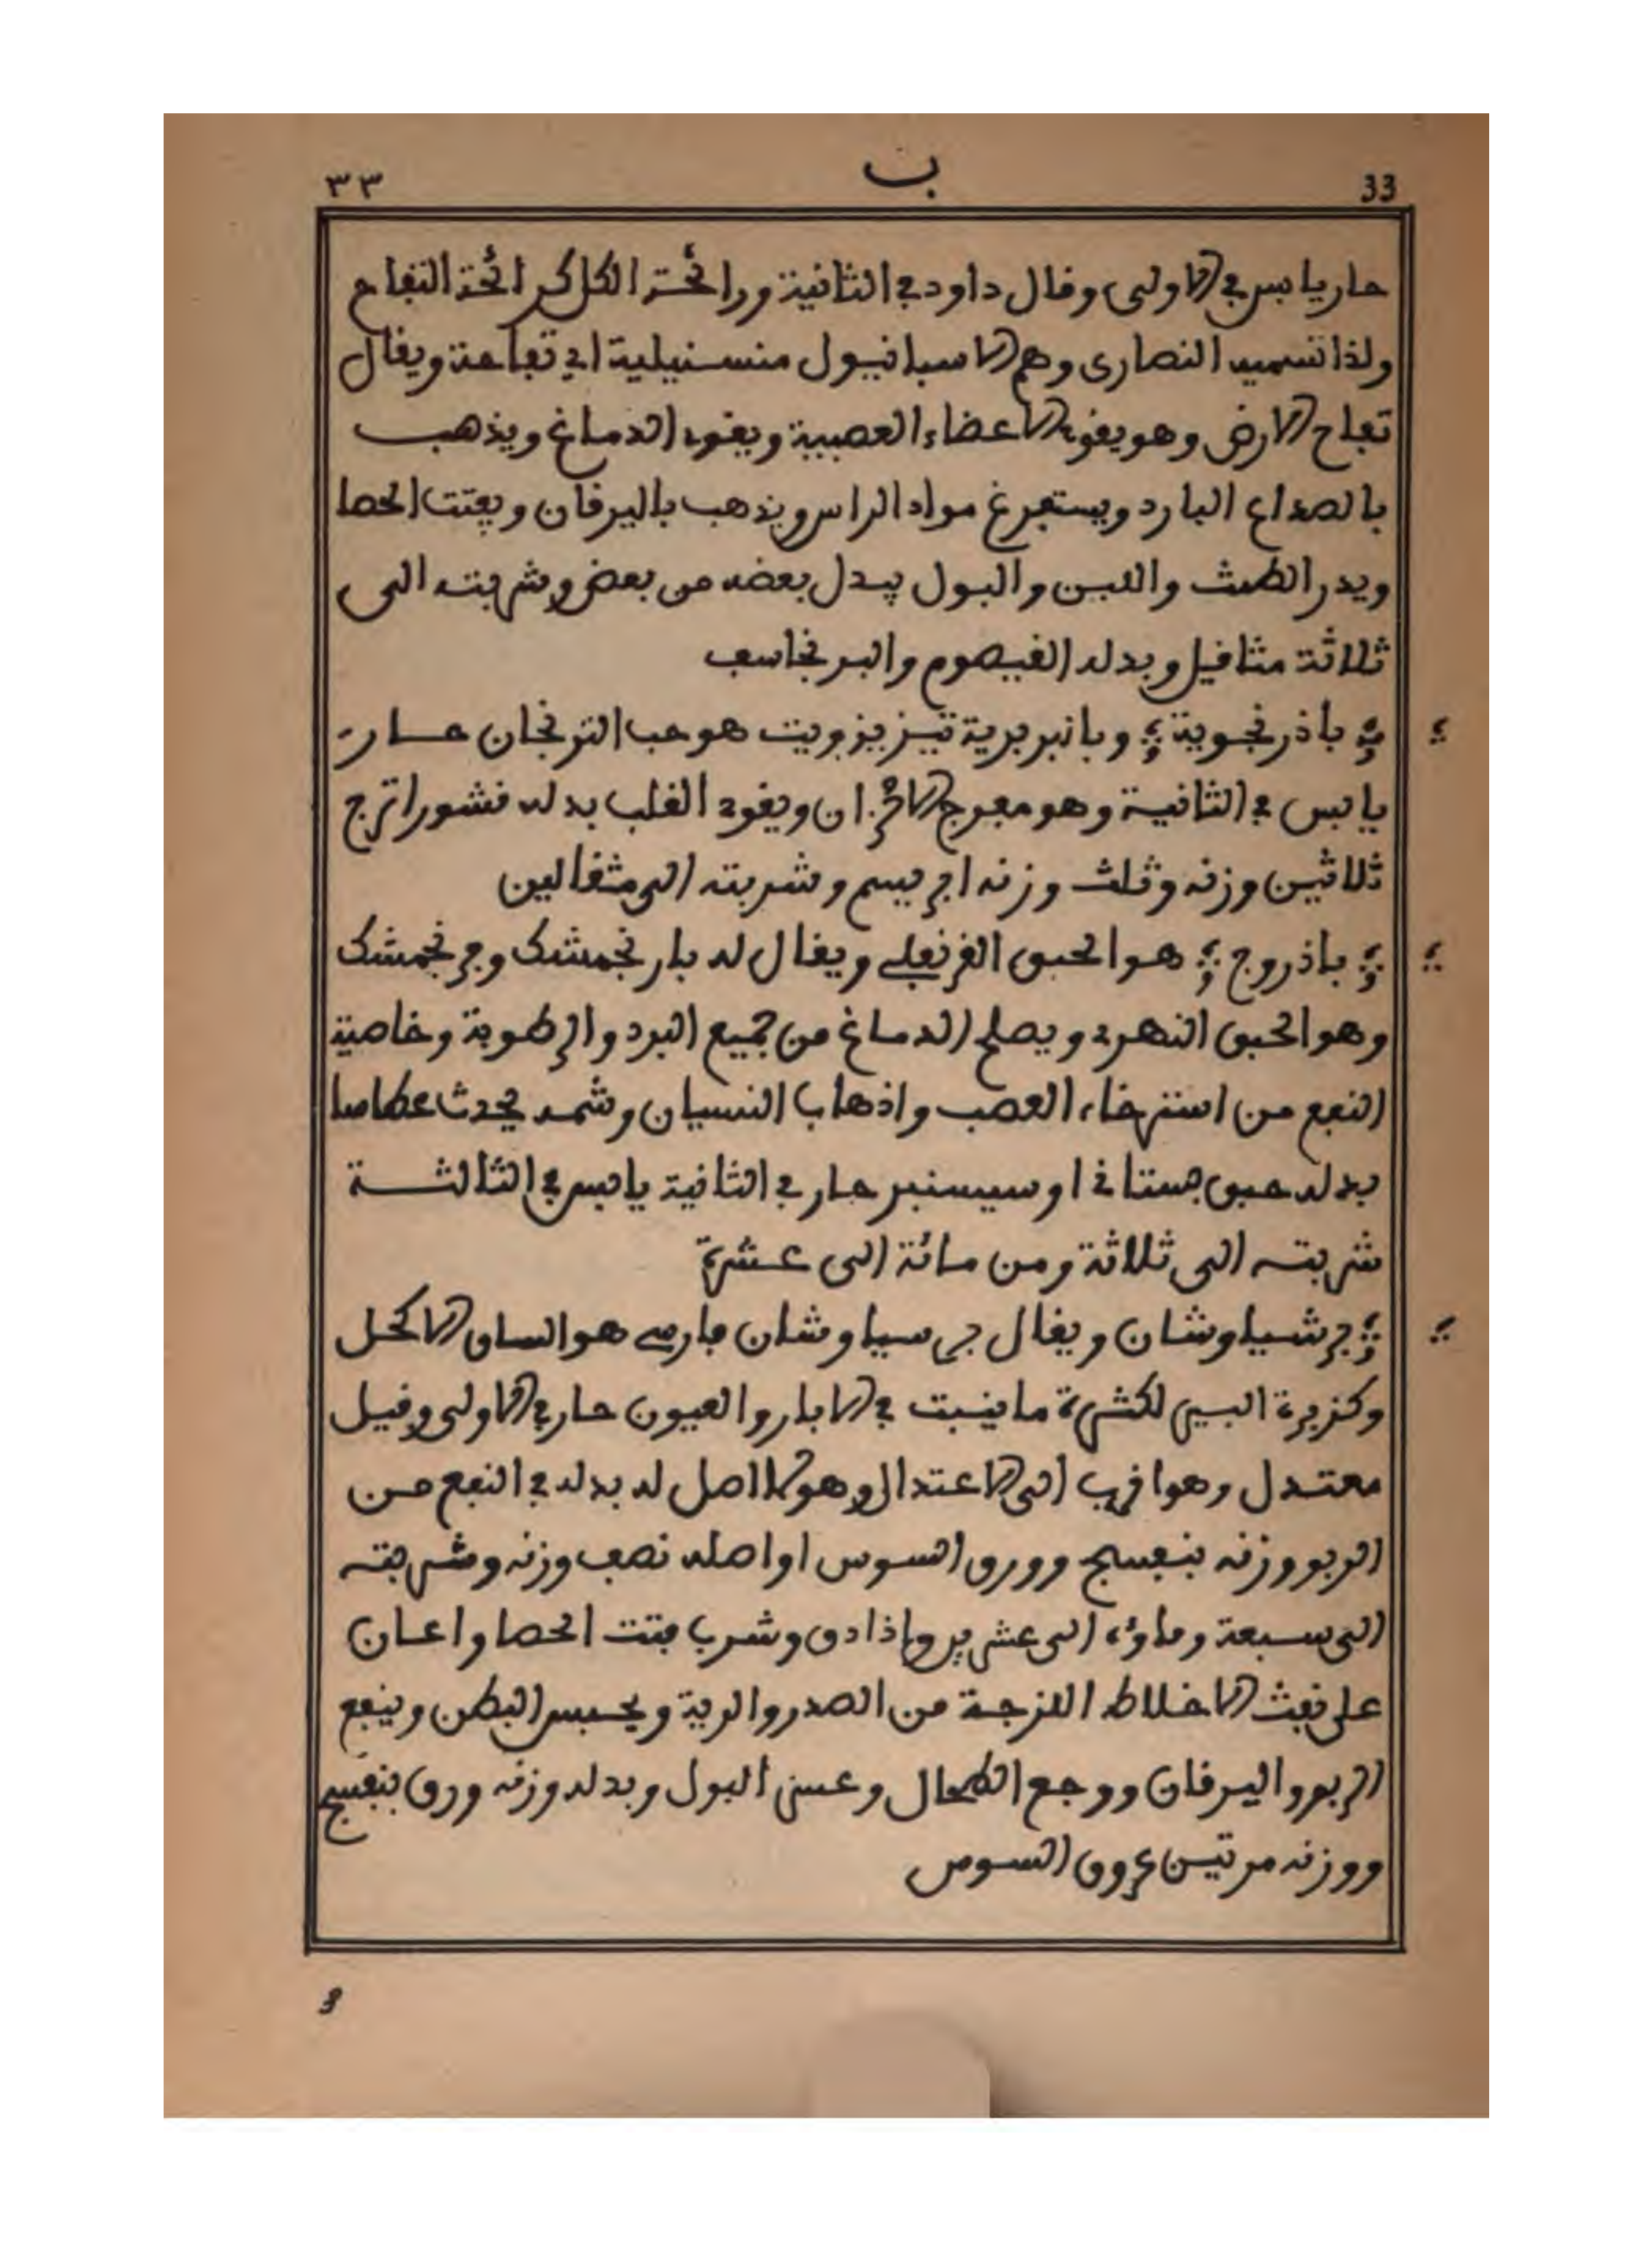 33 ب ٣٣
حار يابس في الاولى وقال داود في الثانية ورائحة الكل كرائحة التفاح
ولذا تسميه النصارى وهم الاسبانيول منسنيلية اي تفاحة ويقال
تفاح الارض وهو يقوي الاعضاء العصبية ويقوي الدماغ ويذهب
بالصداع البارد ويستفرغ مواد الراس ويذهب باليرقان ويفتت الحصا
ويدر الطمث واللبن والبول يبدل بعضه من بعض وشربته الى
ثلاثة مثاقيل وبدله القيصوم والبرنجاسف
باذرنجوية وبالبربرية تيزيزويت هو حب الترنجان حار
يابس في الثانية وهو مفرج الاحزان ويقوي القلب بدله قشور اترج
ثلاثين وزنه وثلث وزنه ابريسم وشربته الى مثقالين
باذروج هو الحبق القرنفلي ويقال له بارنجمشك وبرنجمشك
وهو الحبق النهري ويصلح الدماغ من جميع البرد والرطوبة وخاصية
النفع من استرخاء العصب واذهاب النسيان وشمه يحدث عطاسا
بدله حبق بستاني او سيسنبر حار في الثانية يابس في الثالثة
شربته الى ثلاثة ومن مائة الى عشرة
برشياوشان ويقال بر سياوشان فارسي هو الساق الاكحل
وكزبرة البير لكثرة ما ينبت في الابار والعيون حار في الاولى وقيل
معتدل وهو اقرب الى الاعتدال وهو لا اصل له بدله في النفع من
الربو وزنه بنفسج وورق السوس او اصله نصف وزنه وشربته
الى سبعة وماؤه الى عشرين واذا دق وشرب فتت الحصا واعان
على نفث الاخلاط اللزجة من الصدر والرية ويحبس البطن وينفع
الربو واليرقان ووجع الطحال وعسر البول وبدله وزنه ورق بنفسج
ووزنه مرتين عروق السوس